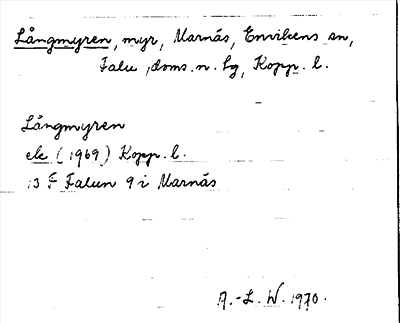 Långmyren, myr, Marnäs, Envikens sn,
Falu doms. n. tg, Kopp. l.
Långmyren
ek (1969) Kopp. l.
13 F Falun 9 i Marnäs
A.-L. W. 1970.